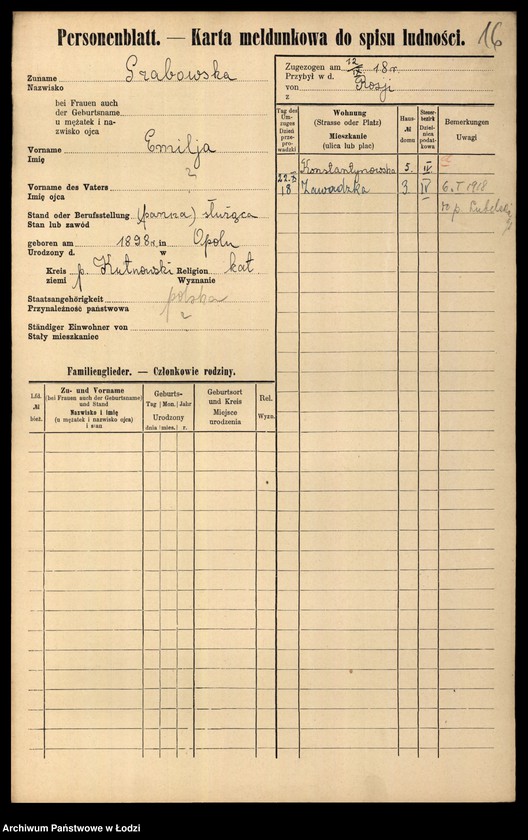 Personenblatt. — Karta meldunkowa do spisu ludności.
16
Zuname
Nazwisko
Grabowska
bei Frauen auch
der Geburtsname
u mężatek i na-
zwisko ojca
Vorname
Imię
Emilja
Vorname des Vaters
Imię ojca
Stand oder Berufsstellung (panna) służąca
Stan lub zawód
geboren am 1898 r. in Opolu
Urodzony d. w
Kreis p. Kutnowski Religion kat
ziemi Wyznanie
Staatsangehörigkeit
Przynależność państwowa
polska
Ständiger Einwohner von
Stały mieszkaniec
Familienglieder. — Członkowie rodziny.
Lfd.
№
bież.
Zu- und Vorname
(bei Frauen auch der Geburtsname)
und Stand
Nazwisko i imię
(u mężatek i nazwisko ojca)
i stan
Geburts-
Tag Mon. Jahr
Urodzony
dnia mies. r.
Geburtsort
und Kreis
Miejsce
urodzenia
Rel.
Wyzn.
Zugezogen am 12/IX 18 r.
Przybył w d.
von Rosji
z
Tag des
Um-
zuges
Dzień
prze-
prowadzki
Wohnung
(Strasse oder Platz)
Mieszkanie
(ulica lub plac)
Haus-
№
domu
Steuer-
bezirk
Dziel-
nica
podat-
kowa
Bemerkungen
Uwagi
Konstantynowska 5. IV
22.X 18 Zawadzka 3 IV 6.I 1918
Archiwum Państwowe w Łodzi